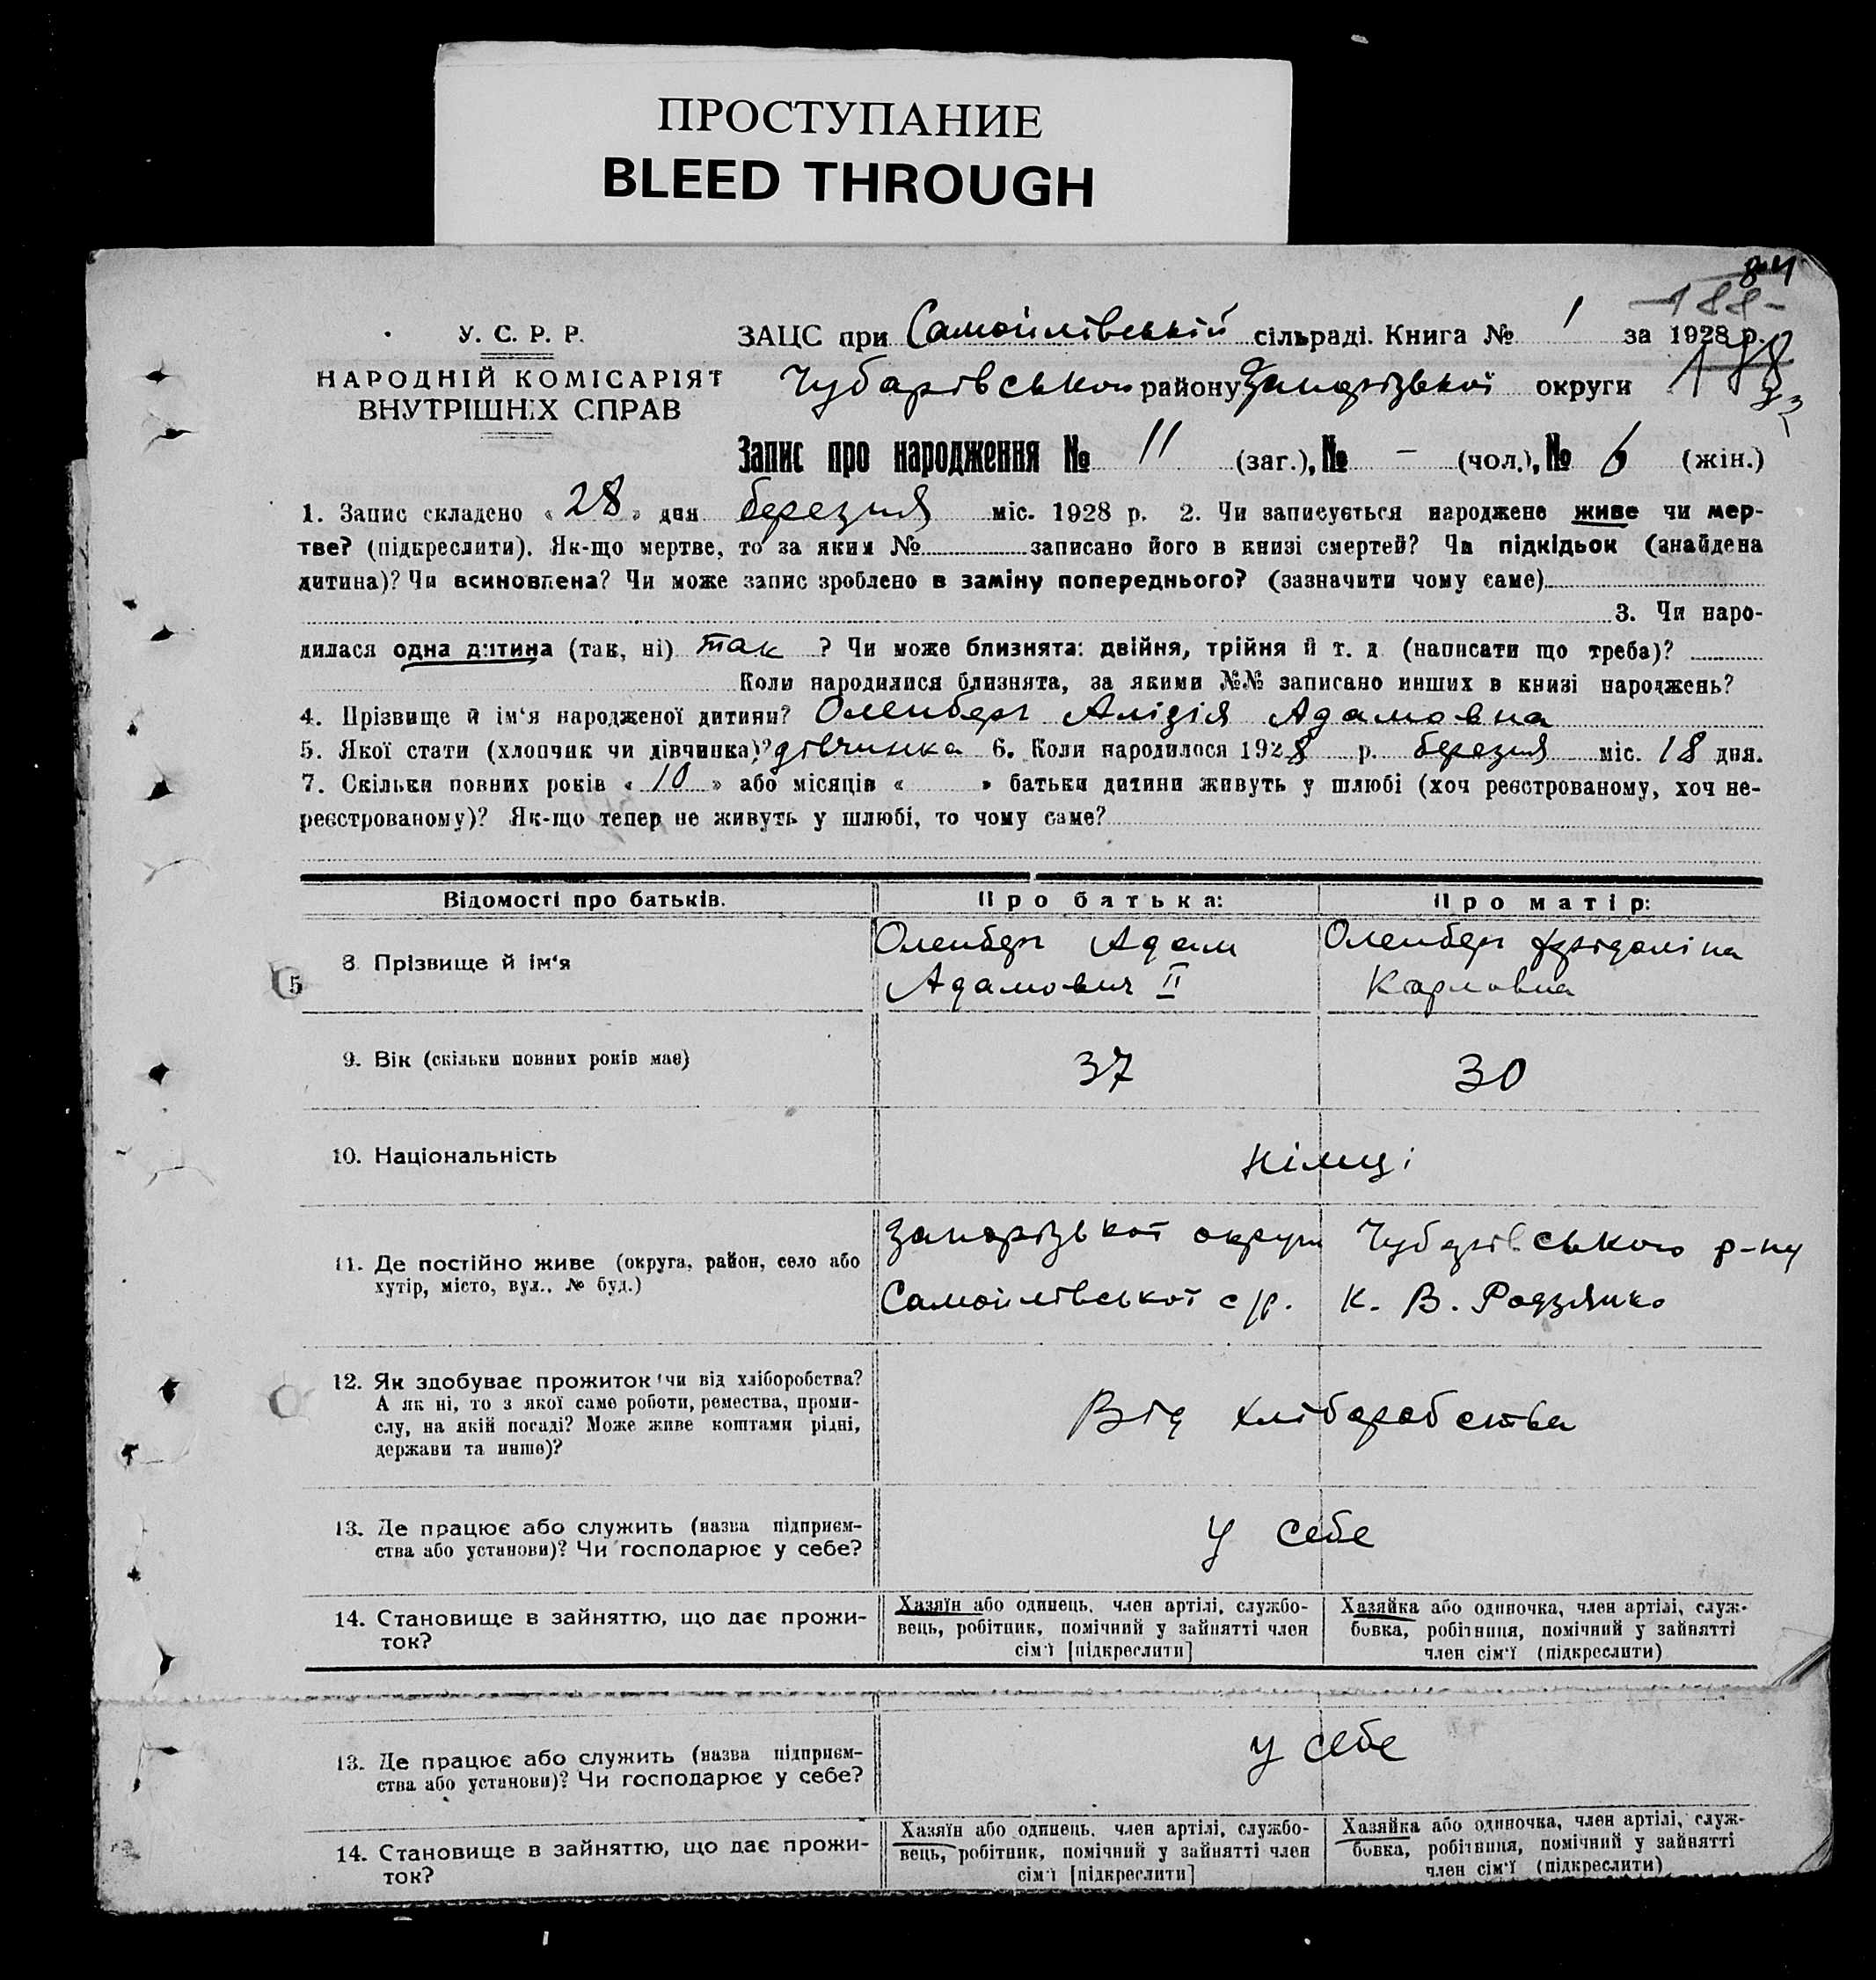 ПРОСТУПАНИЕ
BLEED THROUGH
84
-188-
У. С. Р. Р.
НАРОДНІЙ КОМІСАРІЯТ
ВНУТРІШНІХ СПРАВ
ЗАЦС при Самойлівській сільраді. Книга № 1 за 1928 р.
Чубарівського району Запорізької округи 188
Запис про народження № 11 (заг.), № – (чол.), № 6 (жін.)
1. Запис складено « 28 » дня березня міс. 1928 р. 2. Чи записується народжене живе чи мер-
тве? (підкреслити). Як-що мертве, то за яким № записано його в книзі смертей? Чи підкідьок (знайдена
дитина)? Чи всиновлена? Чи може запис зроблено в заміну попереднього? (зазначити чому саме)
3. Чи наро-
дилася одна дитина (так, ні) так ? Чи може близнята: двійня, трійня й т. д. (написати що треба)?
Коли народилися близнята, за якими №№ записано инших в книзі народжень?
4. Прізвище й ім‘я народженої дитини? Оленберг Алізія Адамовна
5. Якої стати (хлопчик чи дівчинка)? дівчинка 6. Коли народилося 1928 р. березня міс. 18 дня.
7. Скільки повних років « 10 » або місяців « » батьки дитини живуть у шлюбі (хоч реєстрованому, хоч не-
реєстрованому)? Як-що тепер не живуть у шлюбі, то чому саме?
Відомості про батьків. Про батька: Про матір:
8. Прізвище й ім‘я
Оленберг Адам
Адамович II
Оленберг Фрідоліна
Карловна
5
9. Вік (скільки повних років має) 37 30
10. Національність Німці
11. Де постійно живе (округа, район, село або
хутір, місто, вул., № буд.)
Запорізької округи Чубарівського р-ну
Самойлівської с/р. К. В. Родзянко
12. Як здобуває прожиток чи від хліборобства?
А як ні, то з якої саме роботи, ремества, проми-
слу, на якій посаді? Може живе коштами рідні,
держави та инше)?
Від хліборобства
13. Де працює або служить (назва підприєм-
ства або установи)? Чи господарює у себе?
У себе
14. Становище в зайняттю, що дає прожи-
ток?
Хазяїн або одинець, член артілі, службо-
вець, робітник, помічний у зайнятті член
сім‘ї [підкреслити]
Хазяйка або одиночка, член артілі, служ-
бовка, робітниця, помічний у зайнятті
член сім‘ї (підкреслити)
13. Де працює або служить (назва підприєм-
ства або установи)? Чи господарює у себе?
У себе
14. Становище в зайняттю, що дає прожи-
ток?
Хазяїн або одинець, член артілі, службо-
вець, робітник, помічний у зайнятті член
сім‘ї [підкреслити]
Хазяйка або одиночка, член артілі, служ-
бовка, робітниця, помічний у зайнятті
член сім‘ї (підкреслити)